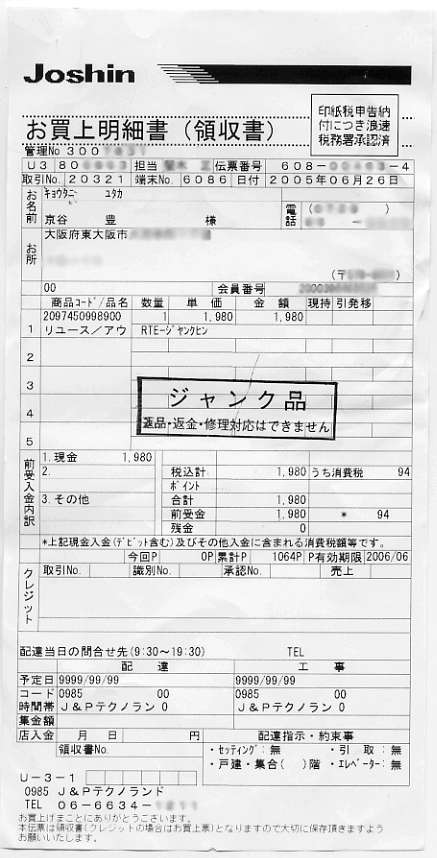 Joshin
印紙税申告納
付につき浪速
税務署承認済
お買上明細書（領収書）
管理No 300
U3 80 担当 伝票番号 608- -4
取引No. 20321 端末No. 6086 日付 2005年06月26日
お名前
キョウタニ ユタカ
京谷 豊 様
電話
お所
大阪府東大阪市
(〒 )
00 会員番号
商品コード/品名 数量 単価 金額 現持 引発移
2097450998900 1 1,980 1,980
1 リユース／アウ RTEージャンクヒン
2
3
4
5
ジャンク品
返品・返金・修理対応はできません
前受入金内訳
1.現金 1,980
2. 税込計 1,980 うち消費税 94
ポイント
3.その他 合計 1,980
前受金 1,980 * 94
残金 0
*上記現金入金(デビット含む)及びその他入金に含まれる消費税額等です。
今回P 0P 累計P 1064P P有効期限 2006/06
クレジット
取引No. 識別No. 承認No. 売上
配達当日の問合せ先(9:30～19:30) TEL
配達 工事
予定日 9999/99/99 9999/99/99
コード 0985 00 0985 00
時間帯 J＆Pテクノラン 0 J＆Pテクノラン 0
集金額
店入金 月 日 円 配達指示・約束事
領収書No. ・セッティング：無 ・引 取：無
・戸建・集合( )階 ・エレベーター：無
U－3－1
0985 J＆Pテクノランド
TEL 06－6634－
お買上げまことにありがとうございます。
本伝票は領収書(クレジットの場合はお買上票)となりますので大切に保存頂きますよう
お願いいたします。